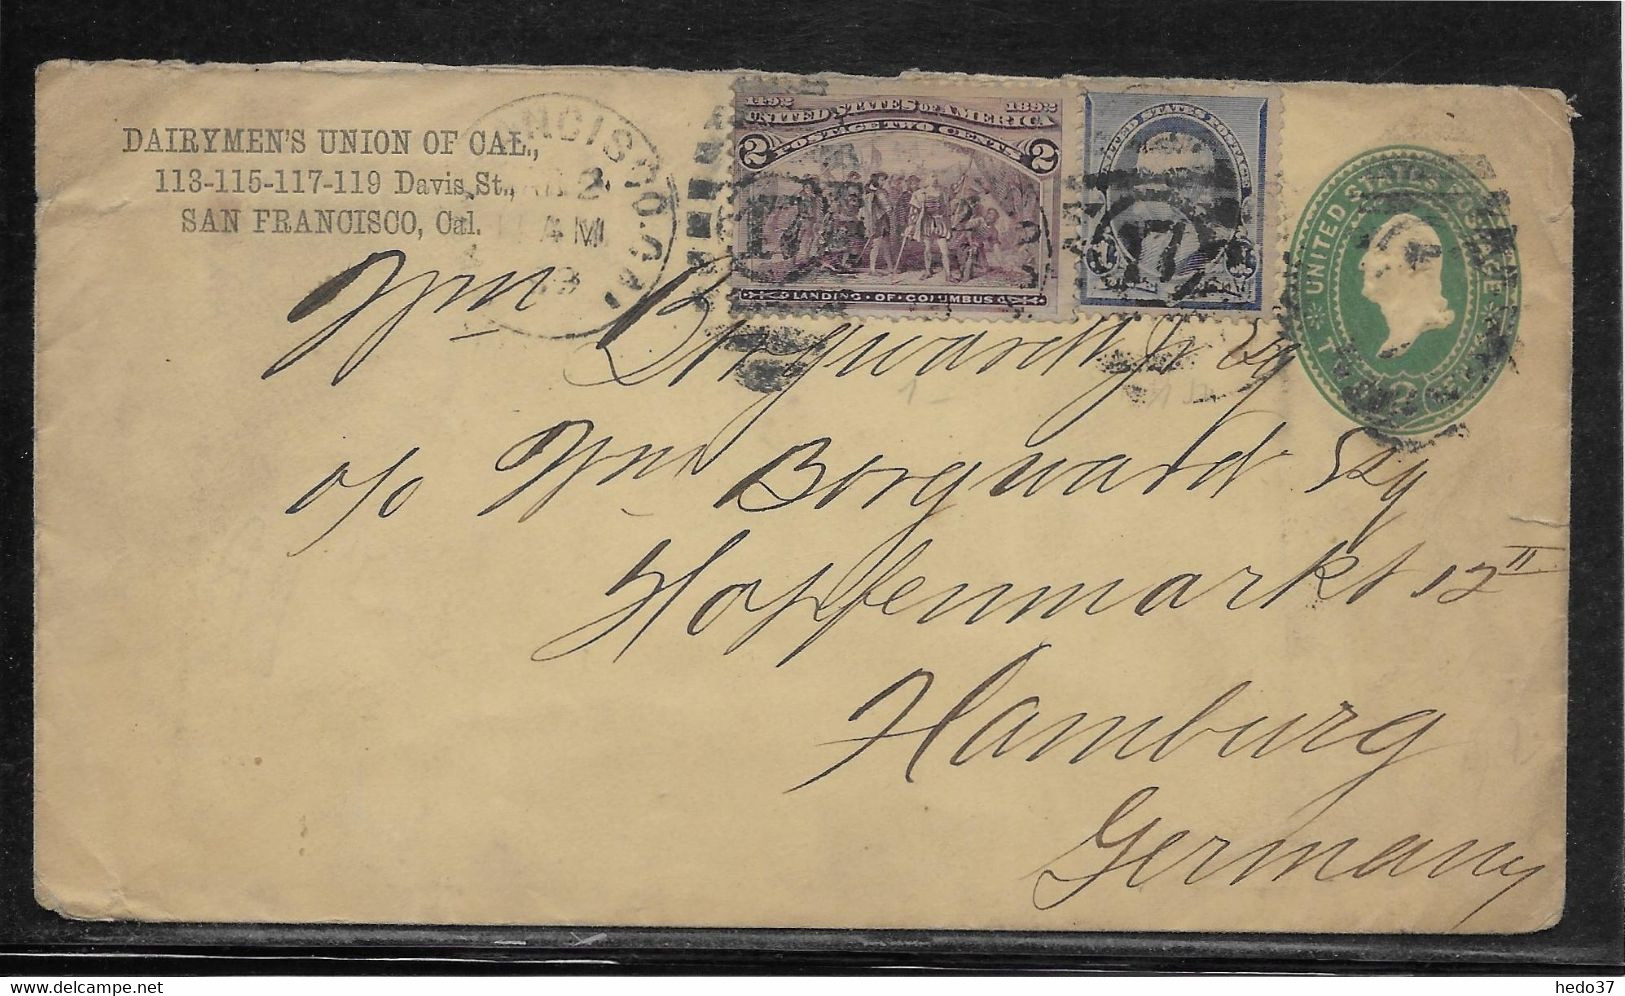 DAIRYMEN'S UNION OF CAL.,
113-115-117-119 Davis St.,
SAN FRANCISCO, Cal.
ANCISCO. CAL
2
AM
1492 1892
UNITED STATES OF AMERICA
POSTAGE TWO CENTS
2 2
LANDING · OF · COLUMBUS
17
UNITED STATES POSTAGE
17
UNITED STATES POSTAGE
Wm Borgward Jr Esq
c/o Wm Borgward Esq
Hopfenmarkt 12 II
Hamburg
Germany
hedo37